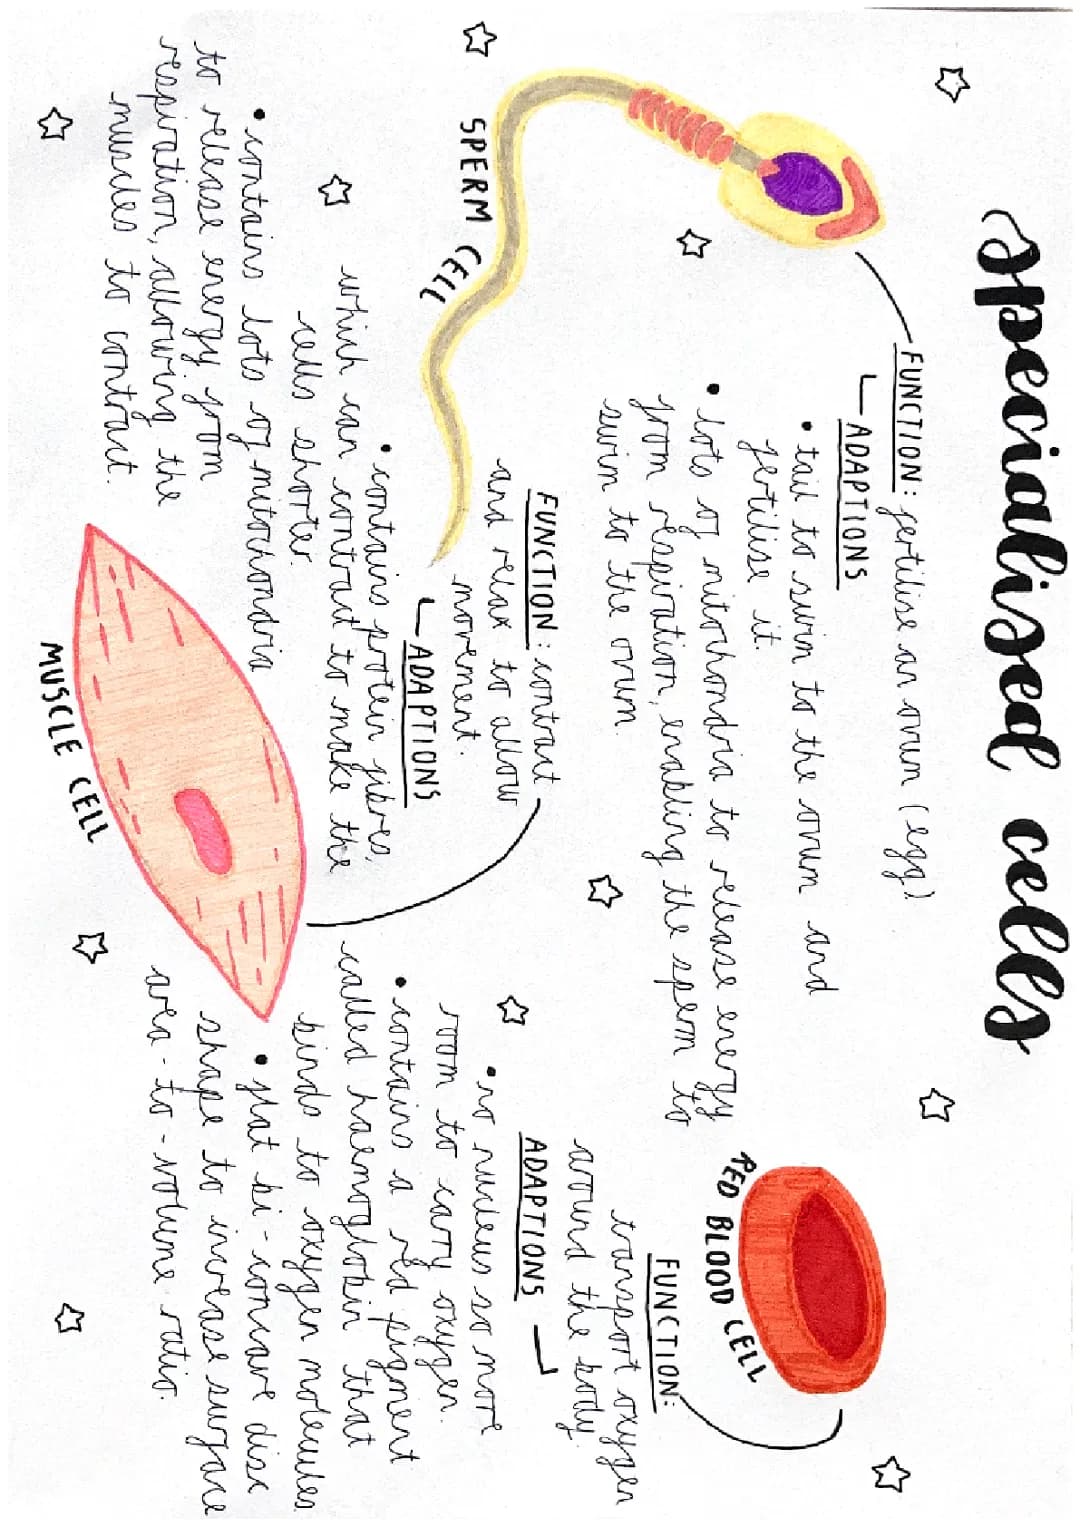 specialised cells
FUNCTION: fertilise an ovum (egg)
ADAPTIONS
• tail to swim to the ovum and
fertilise it.
• lots of mitochondria to release energy
from respiration, enabling the sperm to
swim to the ovum.
SPERM CELL
RED BLOOD CELL
FUNCTION:
transport oxygen
around the body.
ADAPTIONS
• no nucleus so more
room to carry oxygen.
• contains a red pigment
called haemoglobin that
binds to oxygen molecules.
• flat bi-concave disc
shape to increase surface
area-to-volume ratio.
FUNCTION: contract
and relax to allow
movement.
ADAPTIONS
• contains protein fibres,
which can contract to make the
cells shorter.
• contains lots of mitochondria
to release energy from
respiration, allowing the
muscles to contract.
MUSCLE CELL